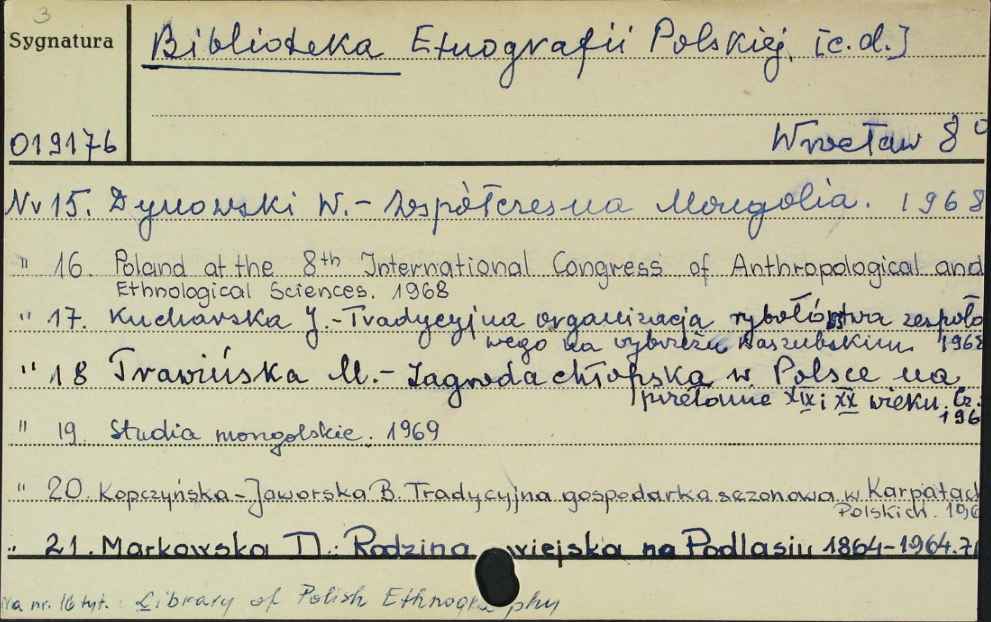 3
Sygnatura
Biblioteka Etnografii Polskiej [c.d.]
019176
Wrocław 8°
Nr 15. Dynowski W. - Współczesna Mongolia. 1968
" 16. Poland at the 8th International Congress of Anthropological and
Ethnological Sciences. 1968
" 17. Kucharska J. - Tradycyjna organizacja rybołówstwa zespoło
wego na wybrzeżu Kaszubskim 1968
" 18 Trawińska M. - Zagroda chłopska w Polsce na
przełomie XIX i XX wieku. Cz.
196
" 19. Studia mongolskie. 1969
" 20. Kopczyńska-Jaworska B. Tradycyjna gospodarka sezonowa w Karpatach
Polskich. 196
" 21. Markowska D.: Rodzina wiejska na Podlasiu 1864-1964. 7
na nr. 16 tyt.: Library of Polish Ethnography